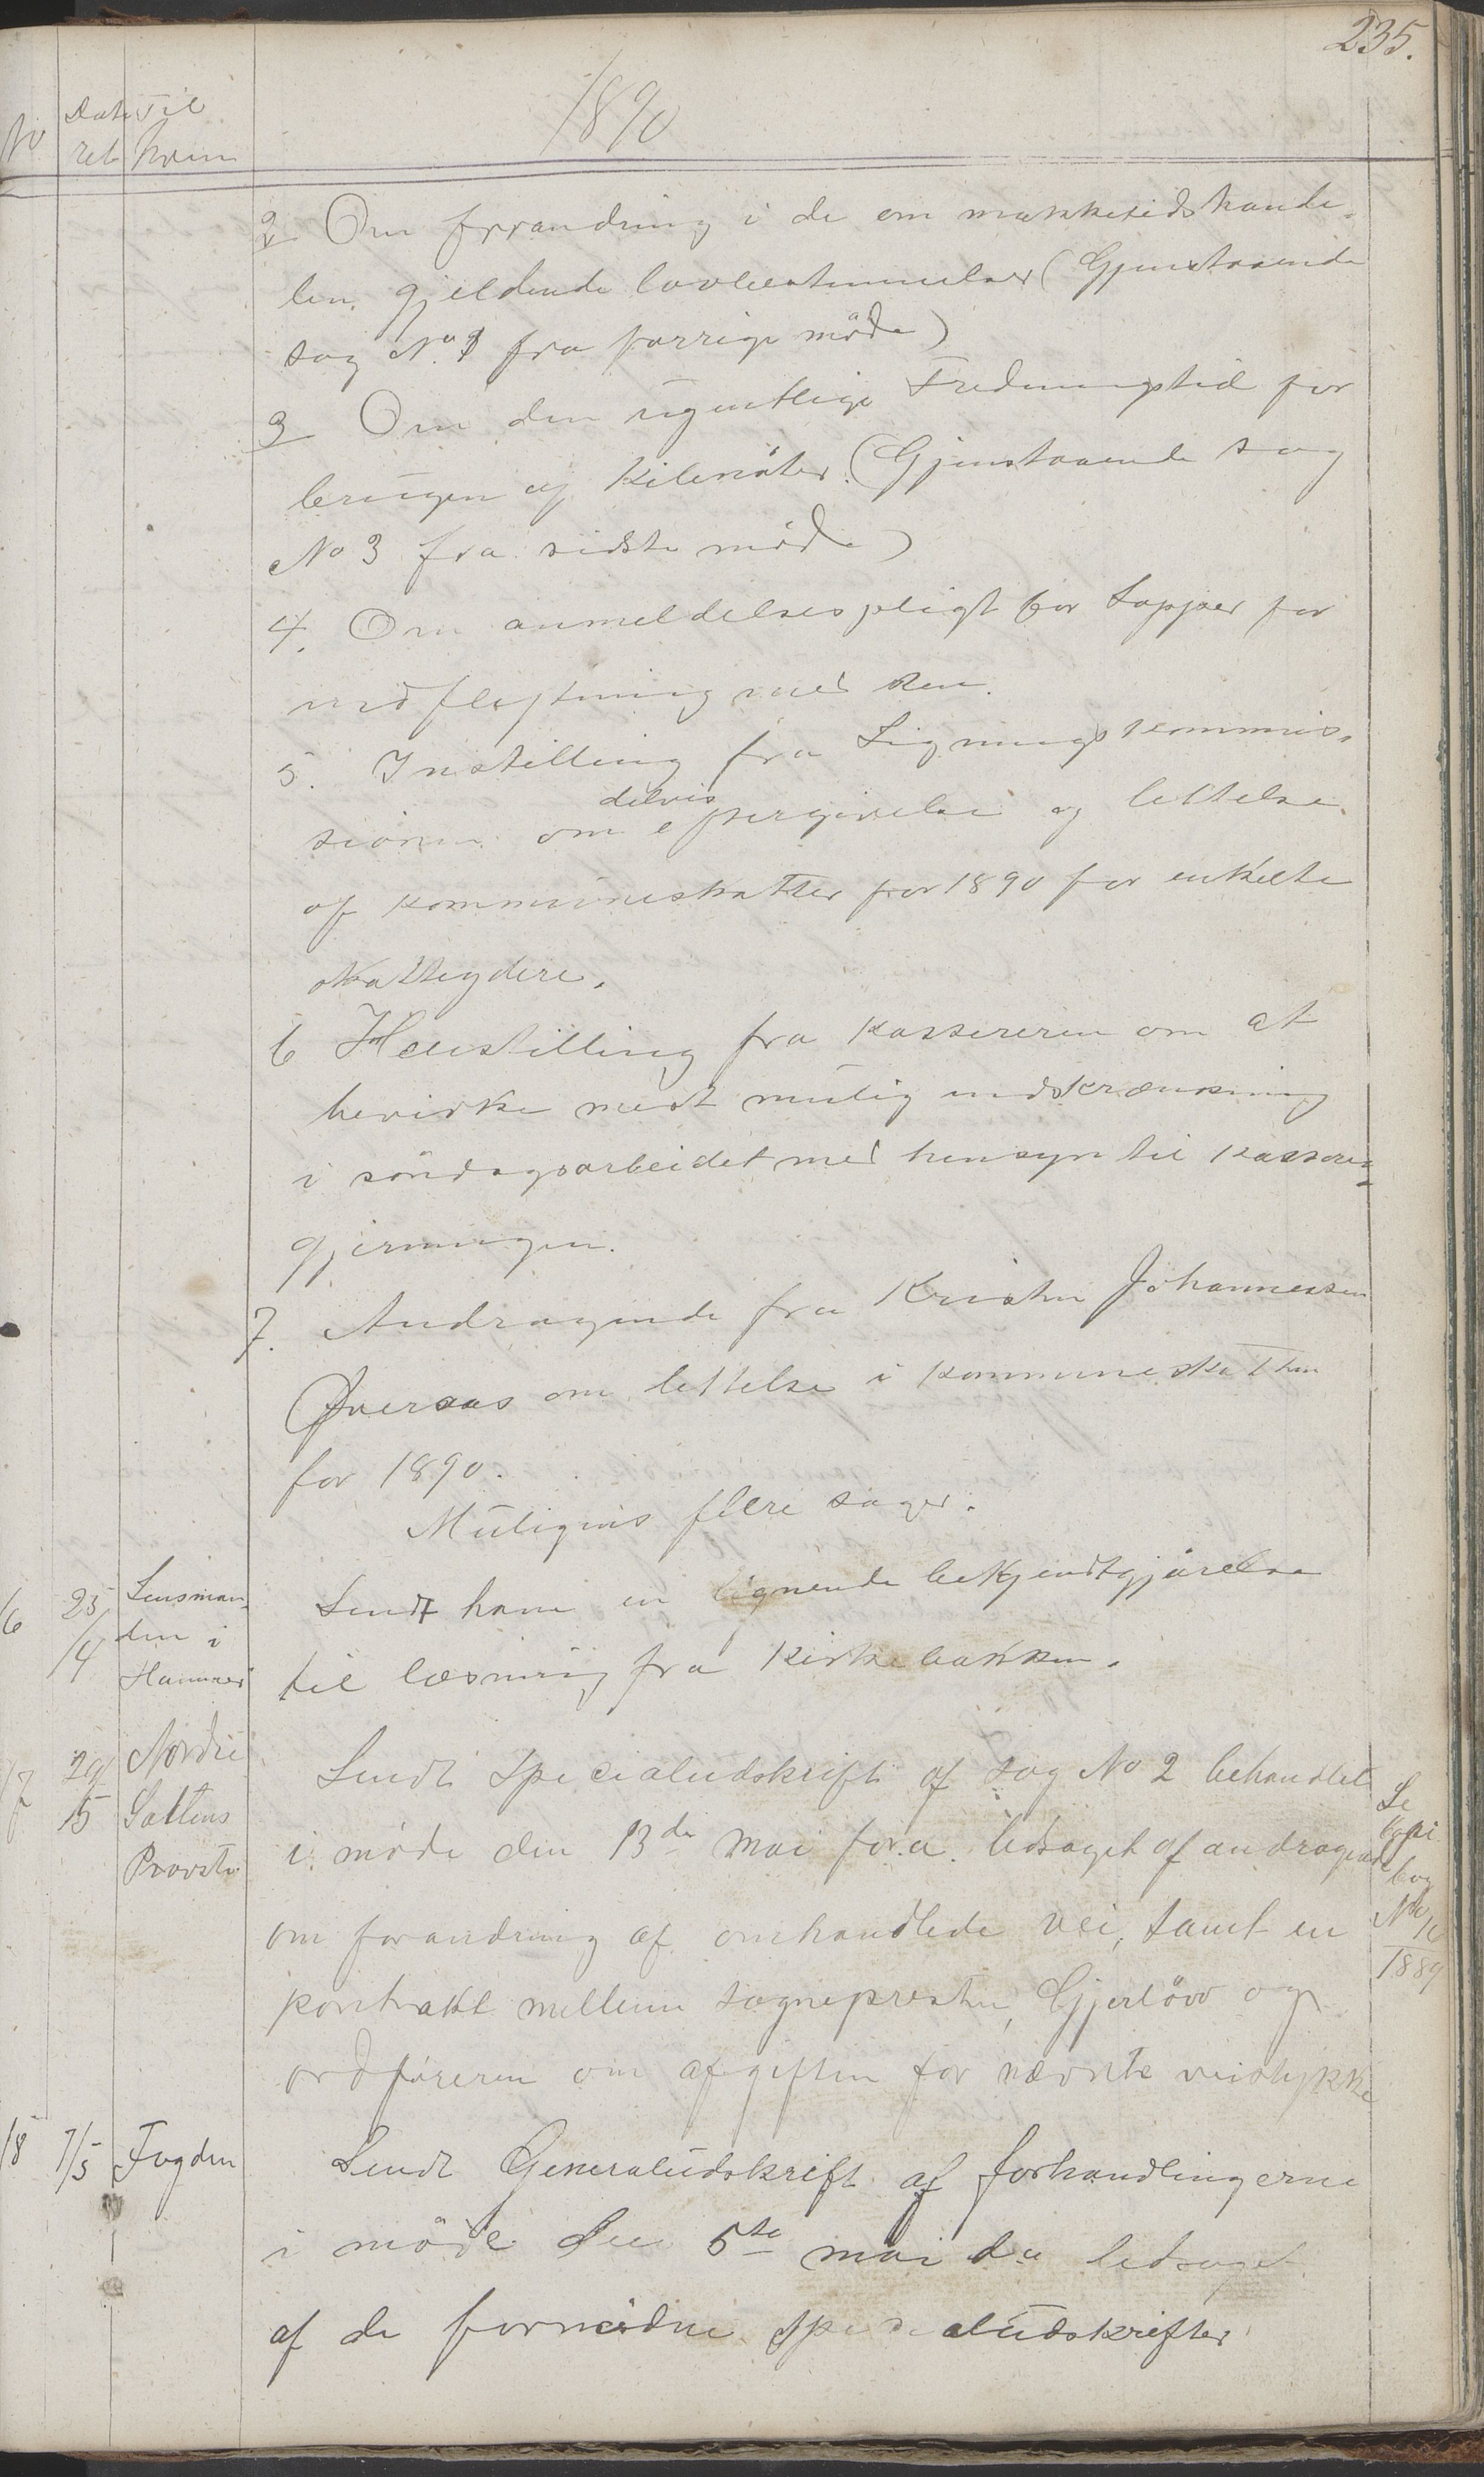 235.
1890
No
Date
ret
Til
hvem
2 Om forandring i de om markedshande-
len gjeldende lovbestemmelser (Gjenstaaende
sag No 1 fra forrige möde)
3 Om den ugentlige Fredningstid for
brugen af Kilenöter. (Gjenstaaende sag
No 3 fra sidste möde)
4. Om anmeldelsespligt for Lapper for
indflytning med Ren.
5. Instilling fra Ligningskommis-
sionen om delvis eftergivelse og lettelse
af kommuneskatter for 1890 for enkelte
skatteydere.
6 Henstilling fra kassereren om at
bevirke mest mulig indskrænkning
i söndagsarbeidet med hensyn til kasserer-
gjerningen.
7. Andragende fra Kristen Johannessen
Tveraas om lettelse i kommuneskatten
for 1890.
Muligens flere sager.
16 25/4 Lensman-
den i
Hammerö
Sendt ham en lignende bekjendtgjörelse
til læsning fra Kirkebakken.
17 29/5 Nordre
Saltens
Provsti
Sendt Specialudskrift af sag No 2 behandlet
i möde den 13de mai f.a. ledsaget af andragende
om forandring af omhandlede vei, samt en
kontrakt mellem sognepresten, Gjerlöw og
ordföreren om afgiften for nævnte veistykke
Se
kopi
bog
No 10
1889
18 7/5 Fogden
Sendt Generaludskrift af forhandlingerne
i möde den 5te mai d.a. ledsaget
af de fornödne specialudskrifter